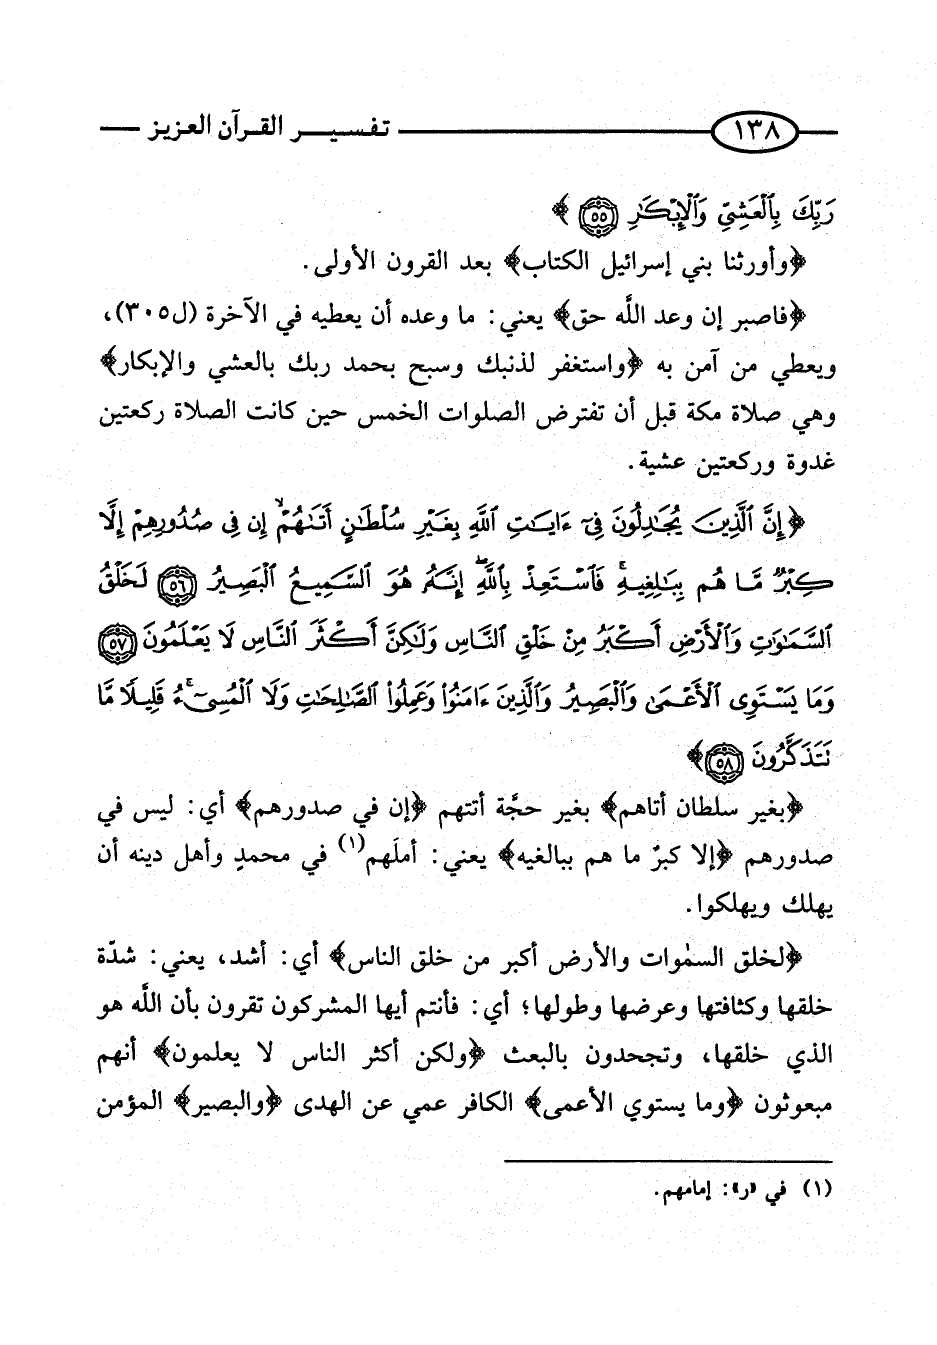 ١٣٨ تفسير القرآن العزيز
رَبِّكَ بِٱلْعَشِيِّ وَٱلْإِبْكَٰرِ ٥٥﴾
﴿وأورثنا بني إسرائيل الكتاب﴾ بعد القرون الأولى.
﴿فاصبر إن وعد اللَّه حق﴾ يعني: ما وعده أن يعطيه في الآخرة (ل٣٠٥)،
ويعطي من آمن به ﴿واستغفر لذنبك وسبح بحمد ربك بالعشي والإبكار﴾
وهي صلاة مكة قبل أن تفترض الصلوات الخمس حين كانت الصلاة ركعتين
غدوة وركعتين عشية.
﴿إِنَّ ٱلَّذِينَ يُجَٰدِلُونَ فِىٓ ءَايَٰتِ ٱللَّهِ بِغَيْرِ سُلْطَٰنٍ أَتَىٰهُمْ ۙ إِن فِى صُدُورِهِمْ إِلَّا
كِبْرٌ مَّا هُم بِبَٰلِغِيهِ ۚ فَٱسْتَعِذْ بِٱللَّهِ ۖ إِنَّهُۥ هُوَ ٱلسَّمِيعُ ٱلْبَصِيرُ ٥٦ لَخَلْقُ
ٱلسَّمَٰوَٰتِ وَٱلْأَرْضِ أَكْبَرُ مِنْ خَلْقِ ٱلنَّاسِ وَلَٰكِنَّ أَكْثَرَ ٱلنَّاسِ لَا يَعْلَمُونَ ٥٧
وَمَا يَسْتَوِى ٱلْأَعْمَىٰ وَٱلْبَصِيرُ وَٱلَّذِينَ ءَامَنُوا۟ وَعَمِلُوا۟ ٱلصَّٰلِحَٰتِ وَلَا ٱلْمُسِىٓءُ ۚ قَلِيلًا مَّا
تَتَذَكَّرُونَ ٥٨﴾
﴿بغير سلطان أتاهم﴾ بغير حجَّة أتتهم ﴿إن في صدورهم﴾ أي: ليس في
صدورهم ﴿إلا كبرٌ ما هم ببالغيه﴾ يعني: أملَهم(١) في محمدٍ وأهل دينه أن
يهلك ويهلكوا.
﴿لخلق السمٰوات والأرض أكبر من خلق الناس﴾ أي: أشد، يعني: شدّة
خلقها وكثافتها وعرضها وطولها؛ أي: فأنتم أيها المشركون تقرون بأن اللَّه هو
الذي خلقها، وتجحدون بالبعث ﴿ولكن أكثر الناس لا يعلمون﴾ أنهم
مبعوثون ﴿وما يستوي الأعمى﴾ الكافر عمي عن الهدى ﴿والبصير﴾ المؤمن
(١) في «ر»: إمامهم.